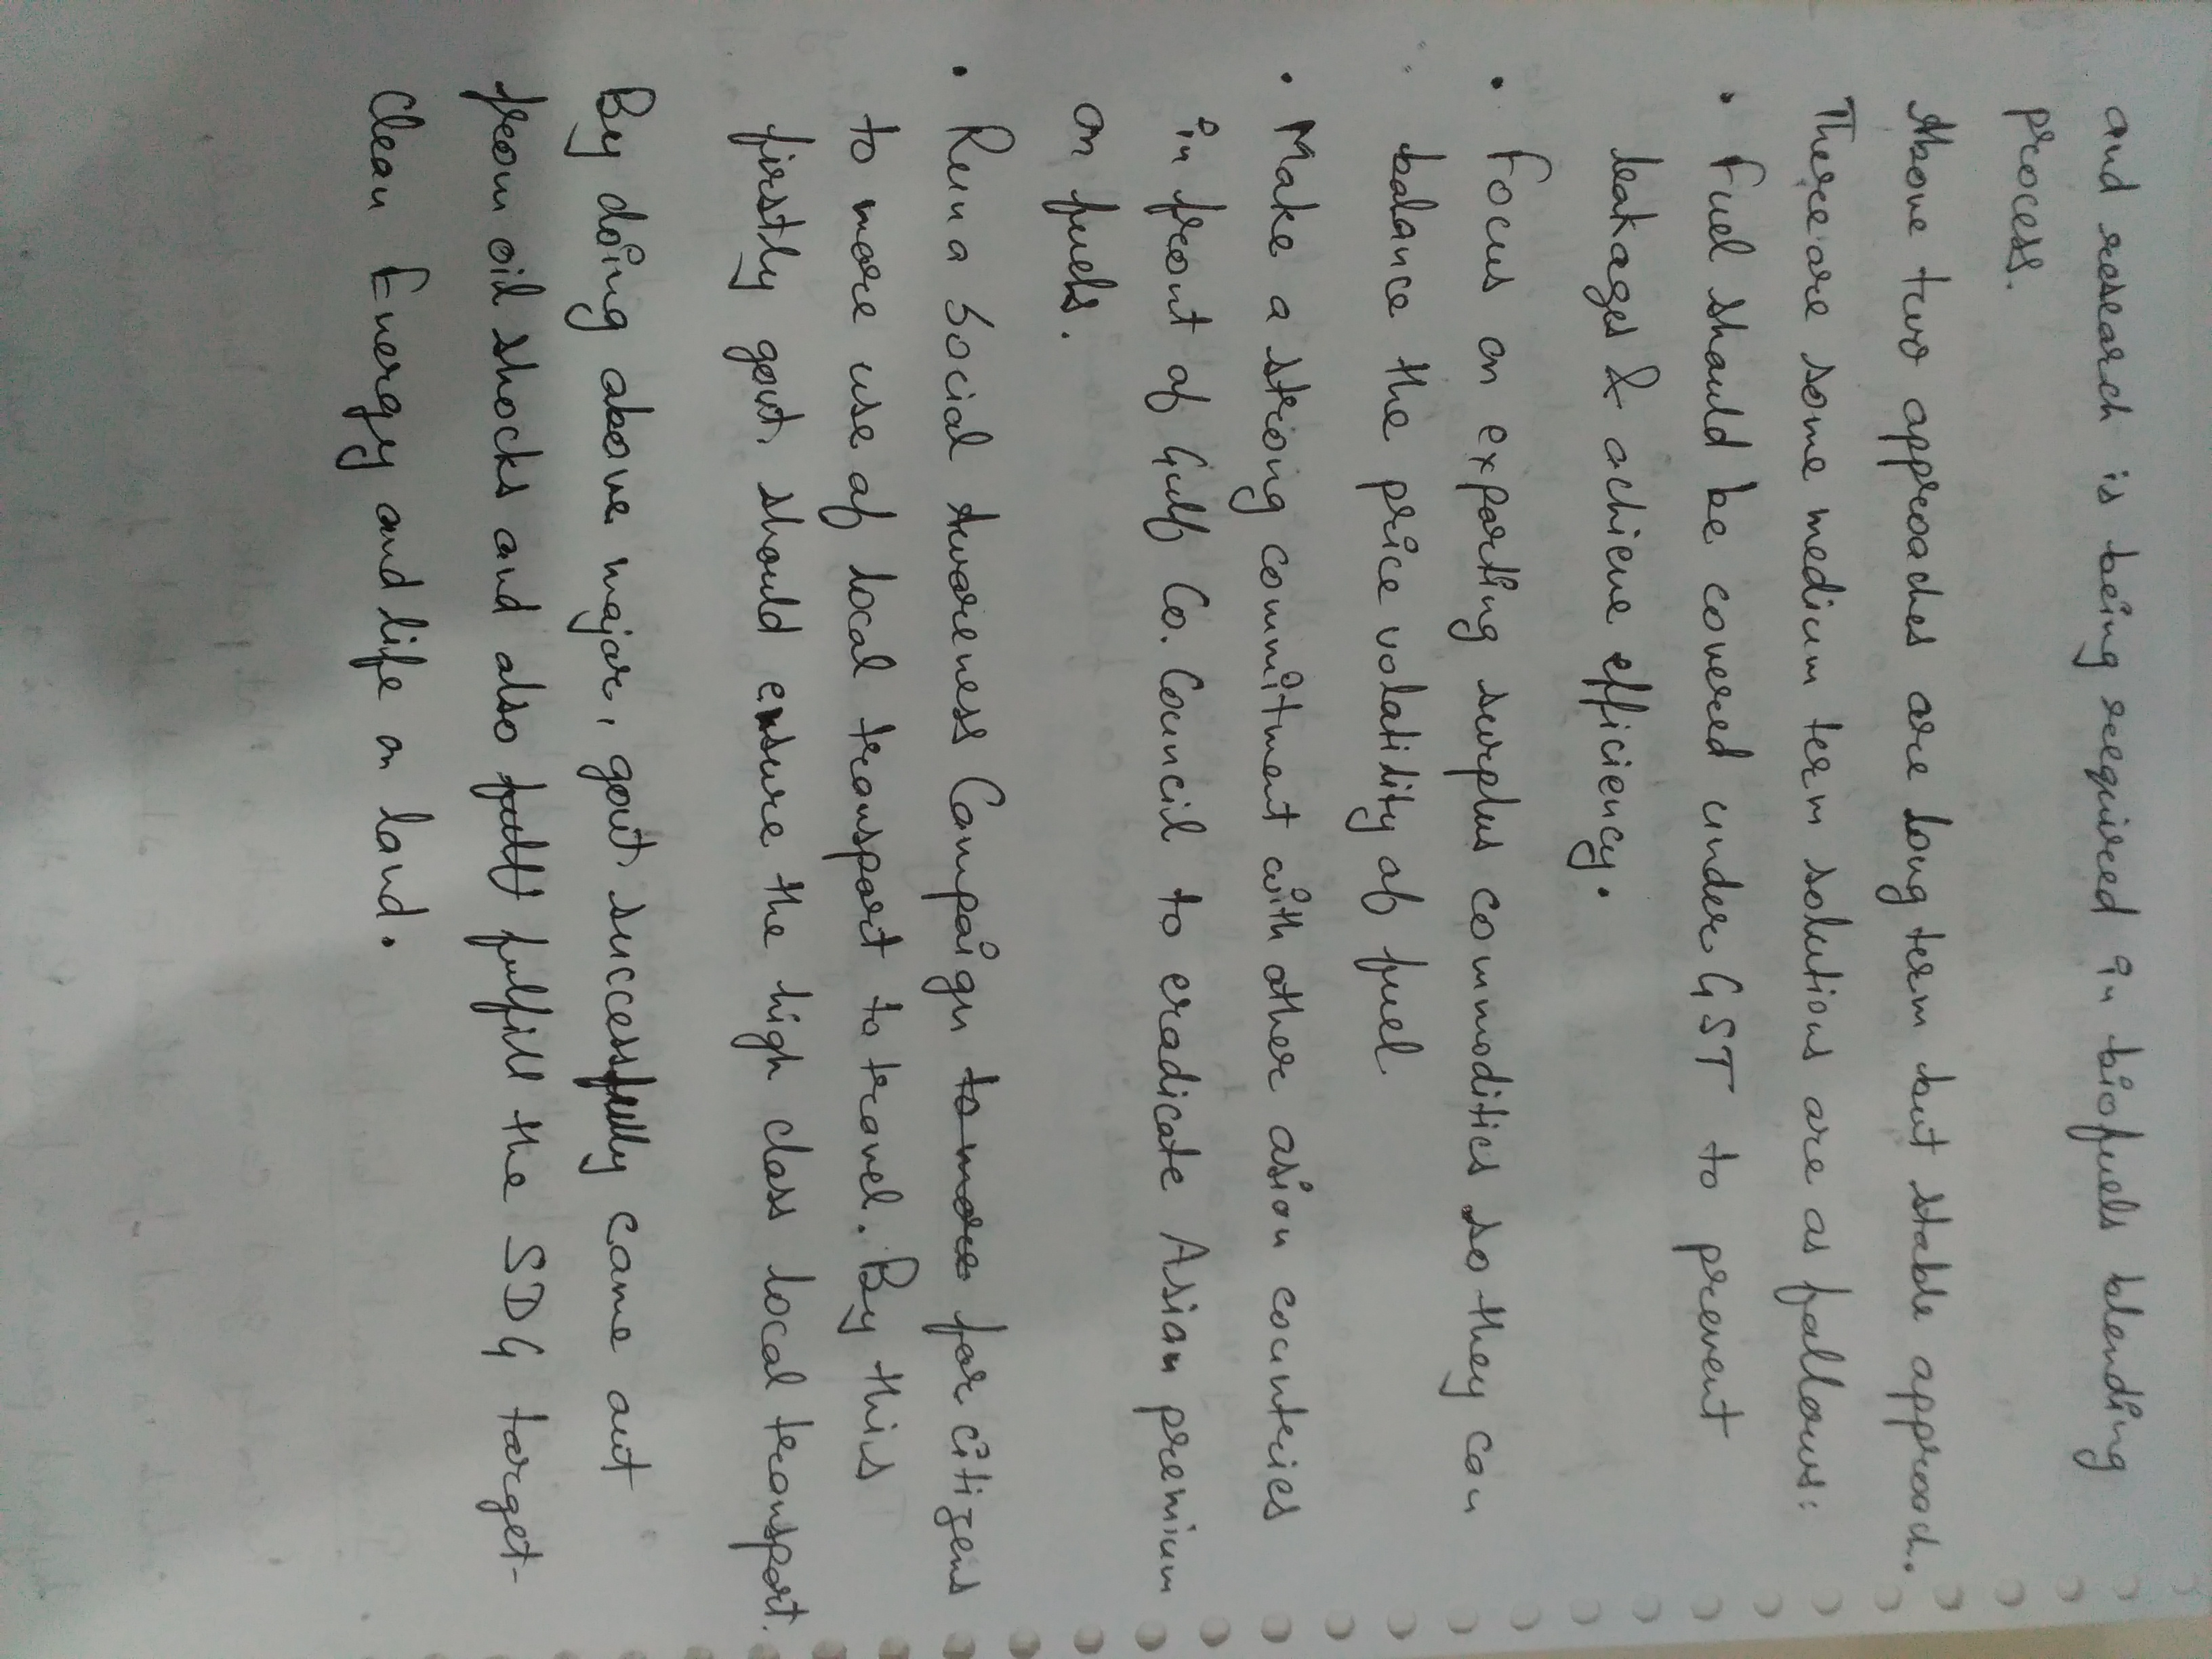 and research is being required in biofuels blending
process.
Above two approaches are long term but stable approach.
There are some medium term solutions are as follows:
• Fuel should be covered under GST to prevent
leakages & achieve efficiency.
• Focus on exporting surplus commodities so they can
balance the price volatility of fuel
• Make a strong commitment with other asian countries
in front of Gulf Co. Council to eradicate Asian premium
on fuels.
• Run a Social Awareness Campaign to more for citizens
to more use of local transport to travel. By this
firstly govt. should ensure the high class local transport.
By doing above major, govt. successfully came out
from oil shocks and also fulfill the SDG target-
Clean Energy and life on land.